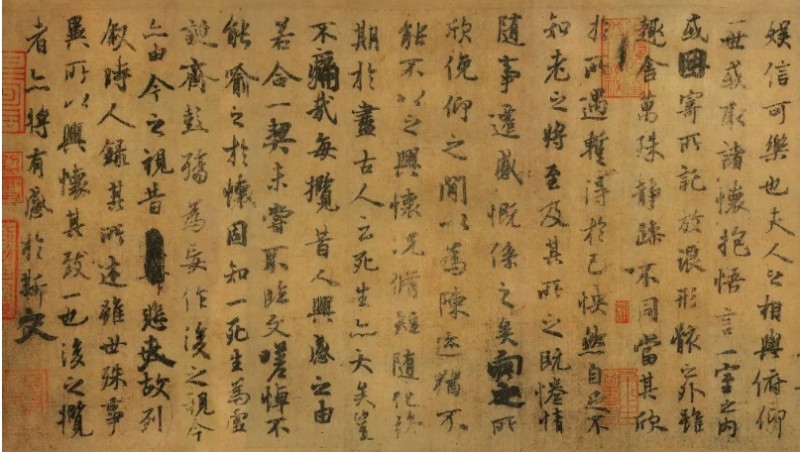 娛信可樂也夫人之相與俯仰
一世或取諸懷抱悟言一室之內
或因寄所託放浪形骸之外雖
趣舍萬殊靜躁不同當其欣
於所遇蹔得於己怏然自足不
知老之將至及其所之既惓情
隨事遷感慨係之矣向之所
欣俛仰之閒以為陳迹猶不
能不以之興懷況脩短隨化終
期於盡古人云死生亦大矣豈
不痛哉每攬昔人興感之由
若合一契未嘗不臨文嗟悼不
能喻之於懷固知一死生為虛
誕齊彭殤為妄作後之視今
亦由今之視昔悲夫故列
敘時人錄其所述雖世殊事
異所以興懷其致一也後之攬
者亦將有感於斯文